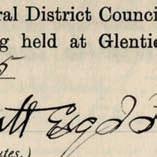 ral District Counci
g held at Glentie
5
tt Esq
utes.)